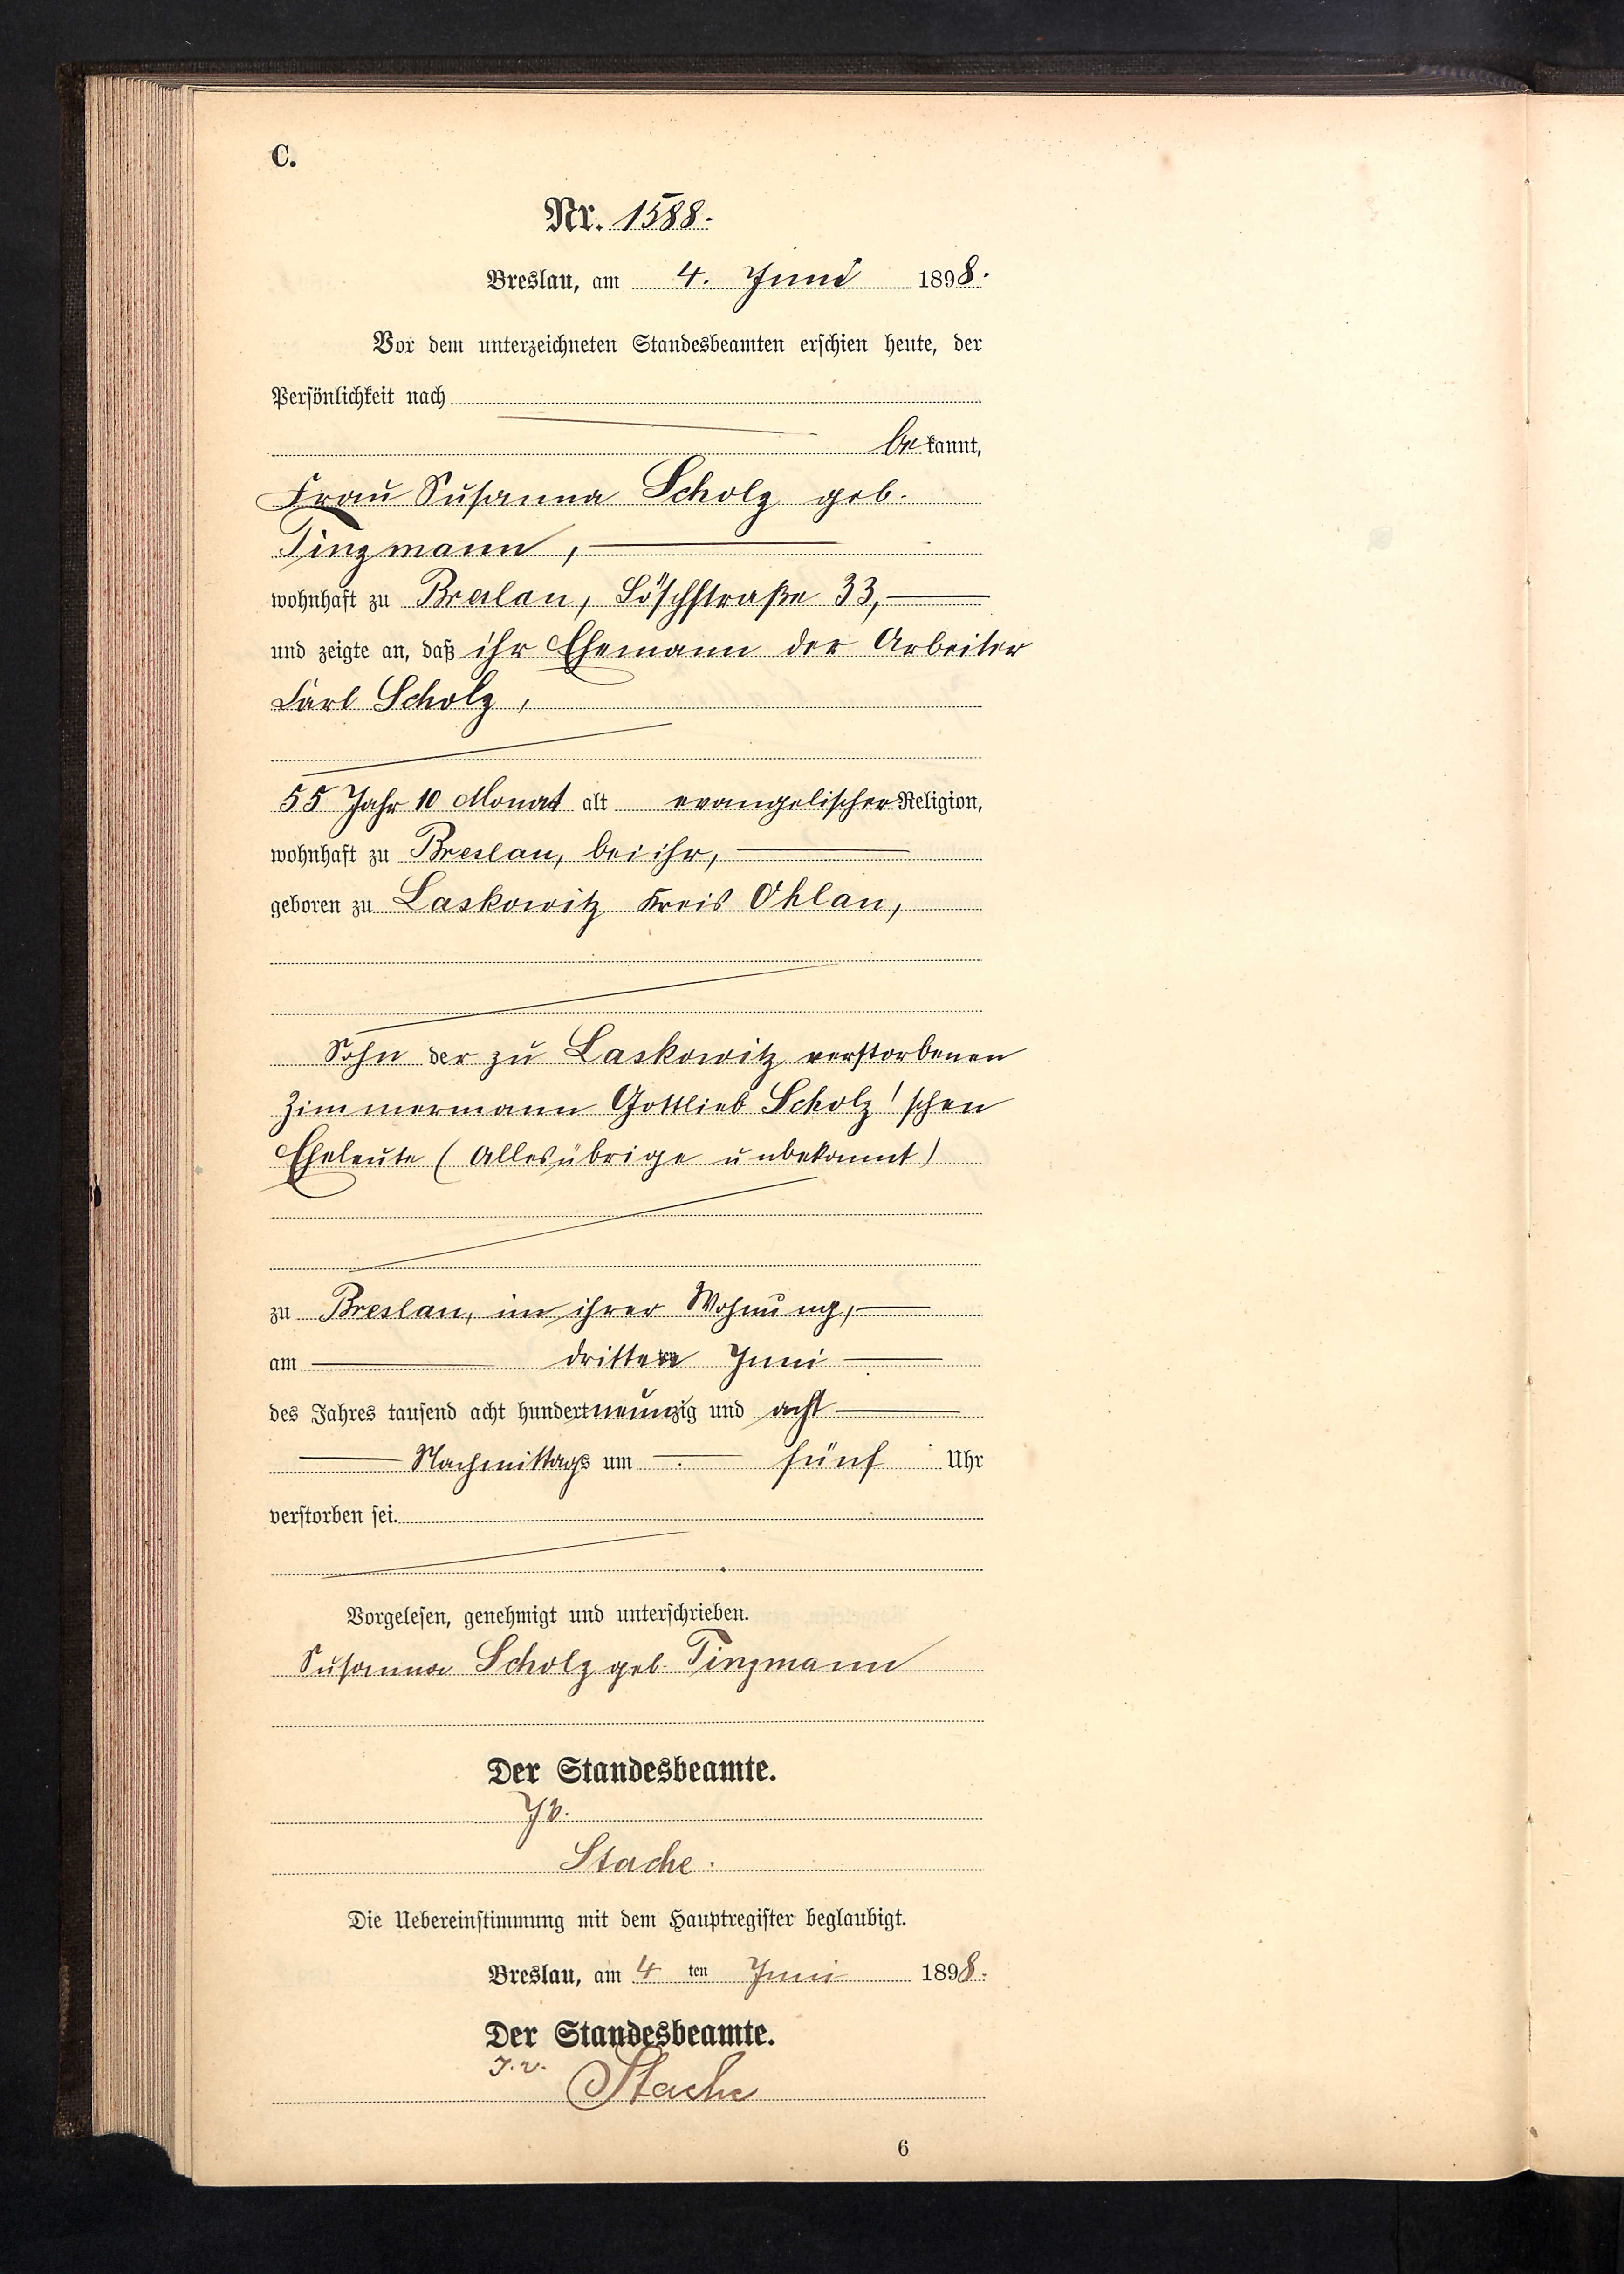 C.
Nr. 1588.
Breslau, am 4. Juni 1898.
Vor dem unterzeichneten Standesbeamten erschien heute, der
Persönlichkeit nach
bekannt,
Frau Susanna Scholz geb.
Tinzmann,
wohnhaft zu Breslau, Löschstraße 33,
und zeigte an, daß ihr Ehemann der Arbeiter
Carl Scholz,
55 Jahr 10 Monat alt evangelischer Religion,
wohnhaft zu Breslau, bei ihr,
geboren zu Laskowitz Kreis Ohlau,
Sohn der zu Laskowitz verstorbenen
Zimmermann Gottlieb Scholz'schen
Eheleute (Alles übrige unbekannt)
zu Breslau, in ihrer Wohnung,
am dritten Juni
des Jahres tausend acht hundert neunzig und acht
Nachmittags um fünf Uhr
verstorben sei.
Vorgelesen, genehmigt und unterschrieben.
Susanna Scholz geb. Tinzmann
Der Standesbeamte.
Jv.
Stache.
Die Uebereinstimmung mit dem Hauptregister beglaubigt.
Breslau, am 4 ten Juni 1898.
Der Standesbeamte.
J.v. Stache
6